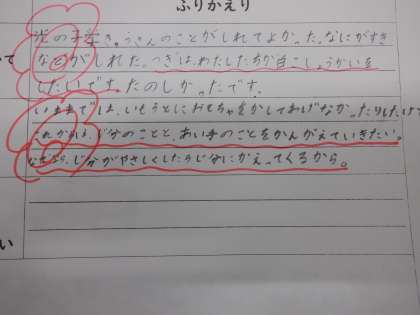 ふりかえり
光の子学き。うさんのことがしれてよかった。なにがすき
などがしれた。つぎは、わたしたちが自こしょうかいを
したいです。たのしかったです。
いままでは、いもうとにおもちゃをかしてあげなかったりした。けど
これからは、じ分のことと、あい手のことをかんがえていきたい。
なぜなら、じ分がやさしくしたらじ分にかえってくるから。